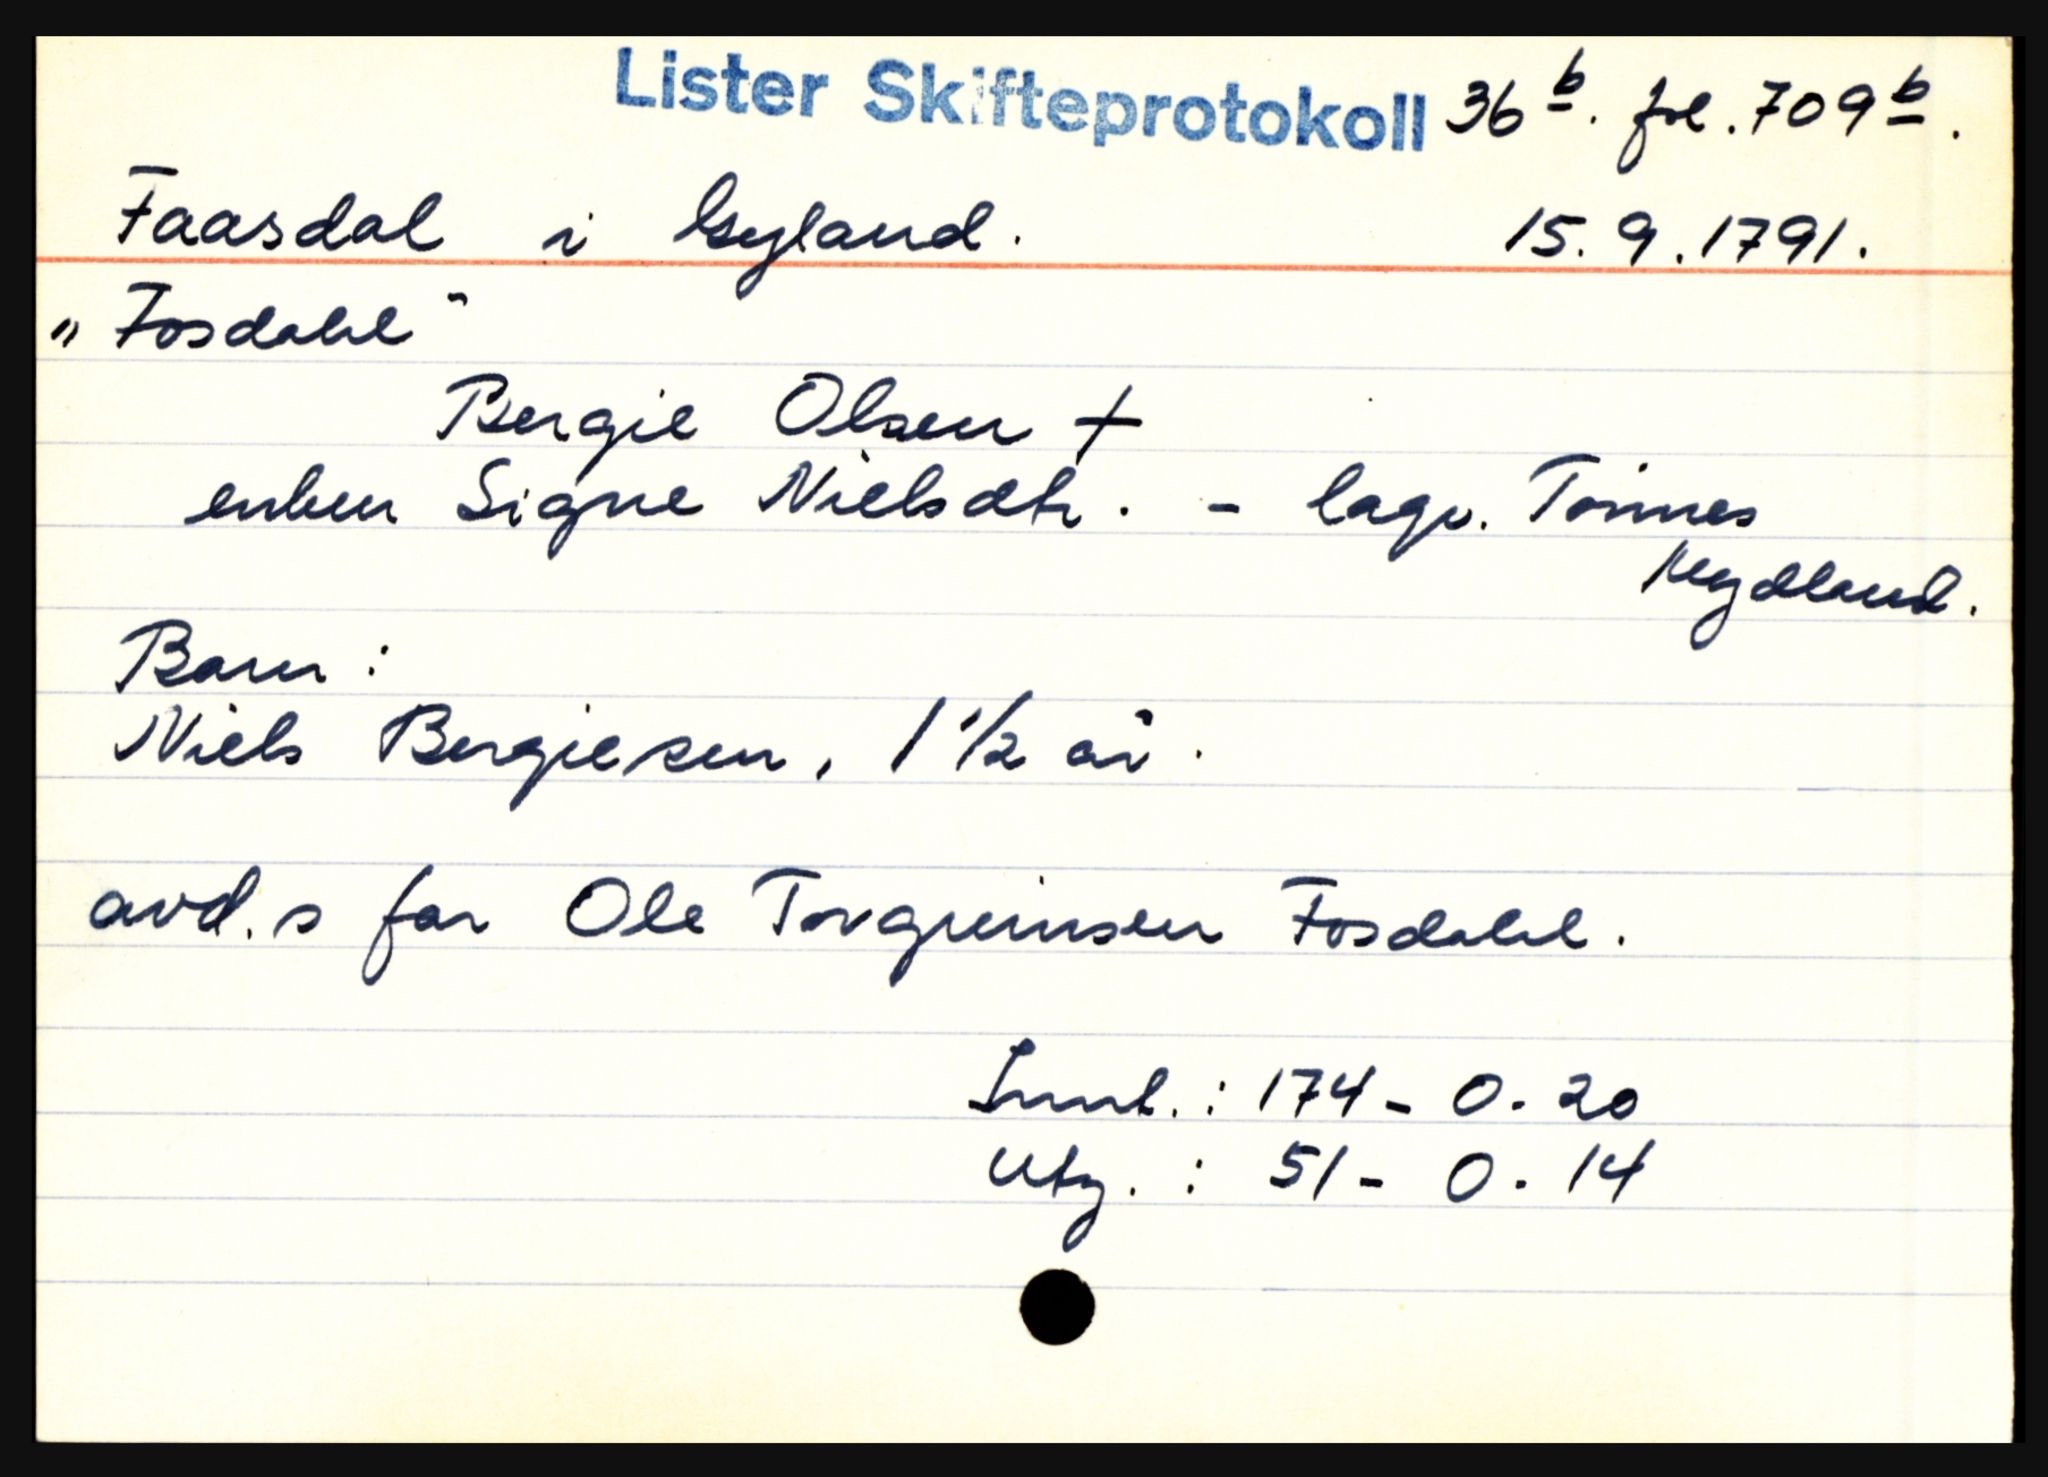 Lister Skifteprotokoll 36 b. fol. 709 b.
Faasdal i Gyland. 15.9.1791.
„Fosdahl"
Bergie Olsen †
enken Signe Nielsdtr. - lagv. Tönnes
Nydland.
Barn:
Niels Bergiesen, 1 1/2 år.
avd.s far Ole Torgrimsen Fosdahl.
Innt.: 174 - 0 - 20
Utg.: 51 - 0 - 14